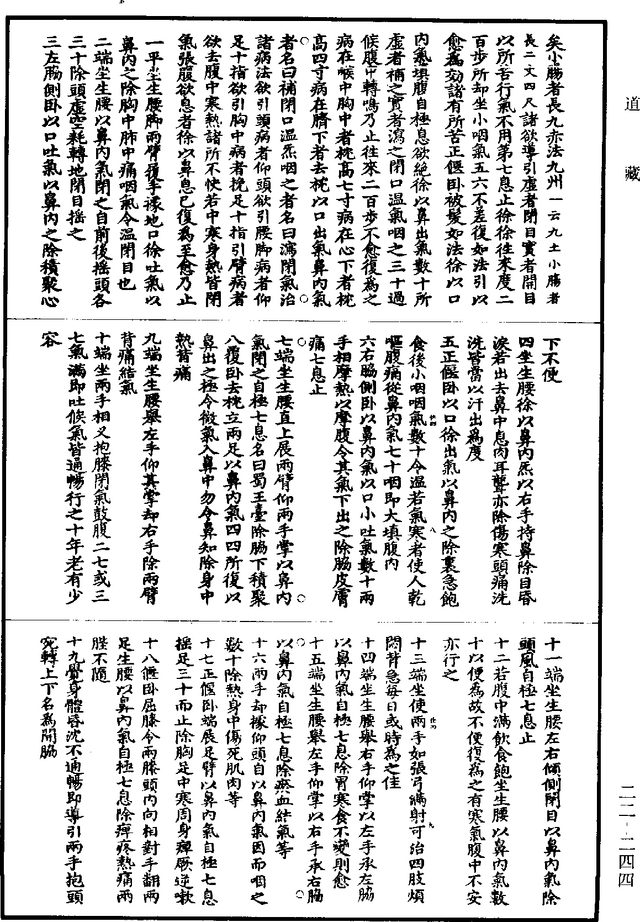 道藏
矣小腸者長九亦法九州一云九土小腸者
長二丈四尺諸欲導引虛者閉目實者開目
以所苦行氣不用第七息止徐徐往來度二
百步所却坐小咽氣五六不差復如法引以
愈爲効諸有所苦正偃卧被髮如法徐以口
內氣填腹自極息欲絕徐以鼻出氣數十所
虛者補之實者瀉之閉口溫氣咽之三十過
候腹中轉鳴乃止往來二百步不愈復爲之
病在喉中胸中者枕高七寸病在心下者枕
高四寸病在臍下者去枕以口出氣鼻內氣
者名曰補閉口溫炁咽之者名曰瀉閉氣治
諸病法欲引頭病者仰頭欲引腰脚病者仰
足十指欲引胸中病者挽足十指引臂病者
欲去腹中寒熱諸所不快若中寒身熱皆閉
氣張腹欲息者徐以鼻息已復爲至愈乃止
一平坐生腰脚兩臂覆手據地口徐吐氣以
鼻內之除胸中肺中痛咽氣令溫閉目也
二端坐生腰以鼻內氣閉之自前後搖頭各
三十除頭虛空耗轉地閉目搖之
三左脇側卧以口吐氣以鼻內之除積聚心
下不便
四坐生腰徐以鼻內炁以右手持鼻除目昏
淚若出去鼻中息肉耳聾亦除傷寒頭痛洗
洗皆當以汗出爲度
五正偃卧以口徐出氣以鼻內之除裏急飽
食後小咽咽氣數十令溫若氣寒者使人乾
嘔腹痛從鼻內氣七十咽即大填腹內
六右脇側卧以鼻內氣以口小吐氣數十兩
手相摩熱以摩腹令其氣下出之除脇皮膚
痛七息止
七端坐生腰直上展兩臂仰兩手掌以鼻內
氣閉之自極七息名曰蜀王臺除脇下積聚
八覆卧去枕立兩足以鼻內氣四四所復以
鼻出之極令微氣入鼻中勿令鼻知除身中
熱背痛
九端坐生腰舉左手仰其掌却右手除兩臂
背痛結氣
十端坐兩手相叉抱膝閉氣鼓腹二七或三
七氣滿即吐候氣皆通暢行之十年老有少
容
十一端坐生腰左右傾側閉目以鼻內氣除
頭風自極七息止
十二若腹中滿飲食飽坐生腰以鼻內氣數
十以便爲故不便復爲之有寒氣腹中不安
亦行之
十三端坐使兩手如張弓滿射可治四肢煩
悶背急每日或時爲之佳
十四端坐生腰舉右手仰掌以左手承左脇
以鼻內氣自極七息除胃寒食不變則愈
十五端坐生腰舉左手仰掌以右手承右脇
以鼻內氣自極七息除瘀血結氣等
十六兩手却據仰頭自以鼻內氣因而咽之
數十除熱身中傷死肌肉等
十七正偃卧端展足臂以鼻內氣自極七息
搖足三十而止除胸足中寒周身痹厥逆嗽
十八偃卧屈膝令兩膝頭內向相對手翻兩
足生腰以鼻內氣自極七息除痹疼熱痛兩
脛不隨
十九覺身體昏沈不通暢即導引兩手抱頭
宛轉上下名爲開脇
二二-二四四